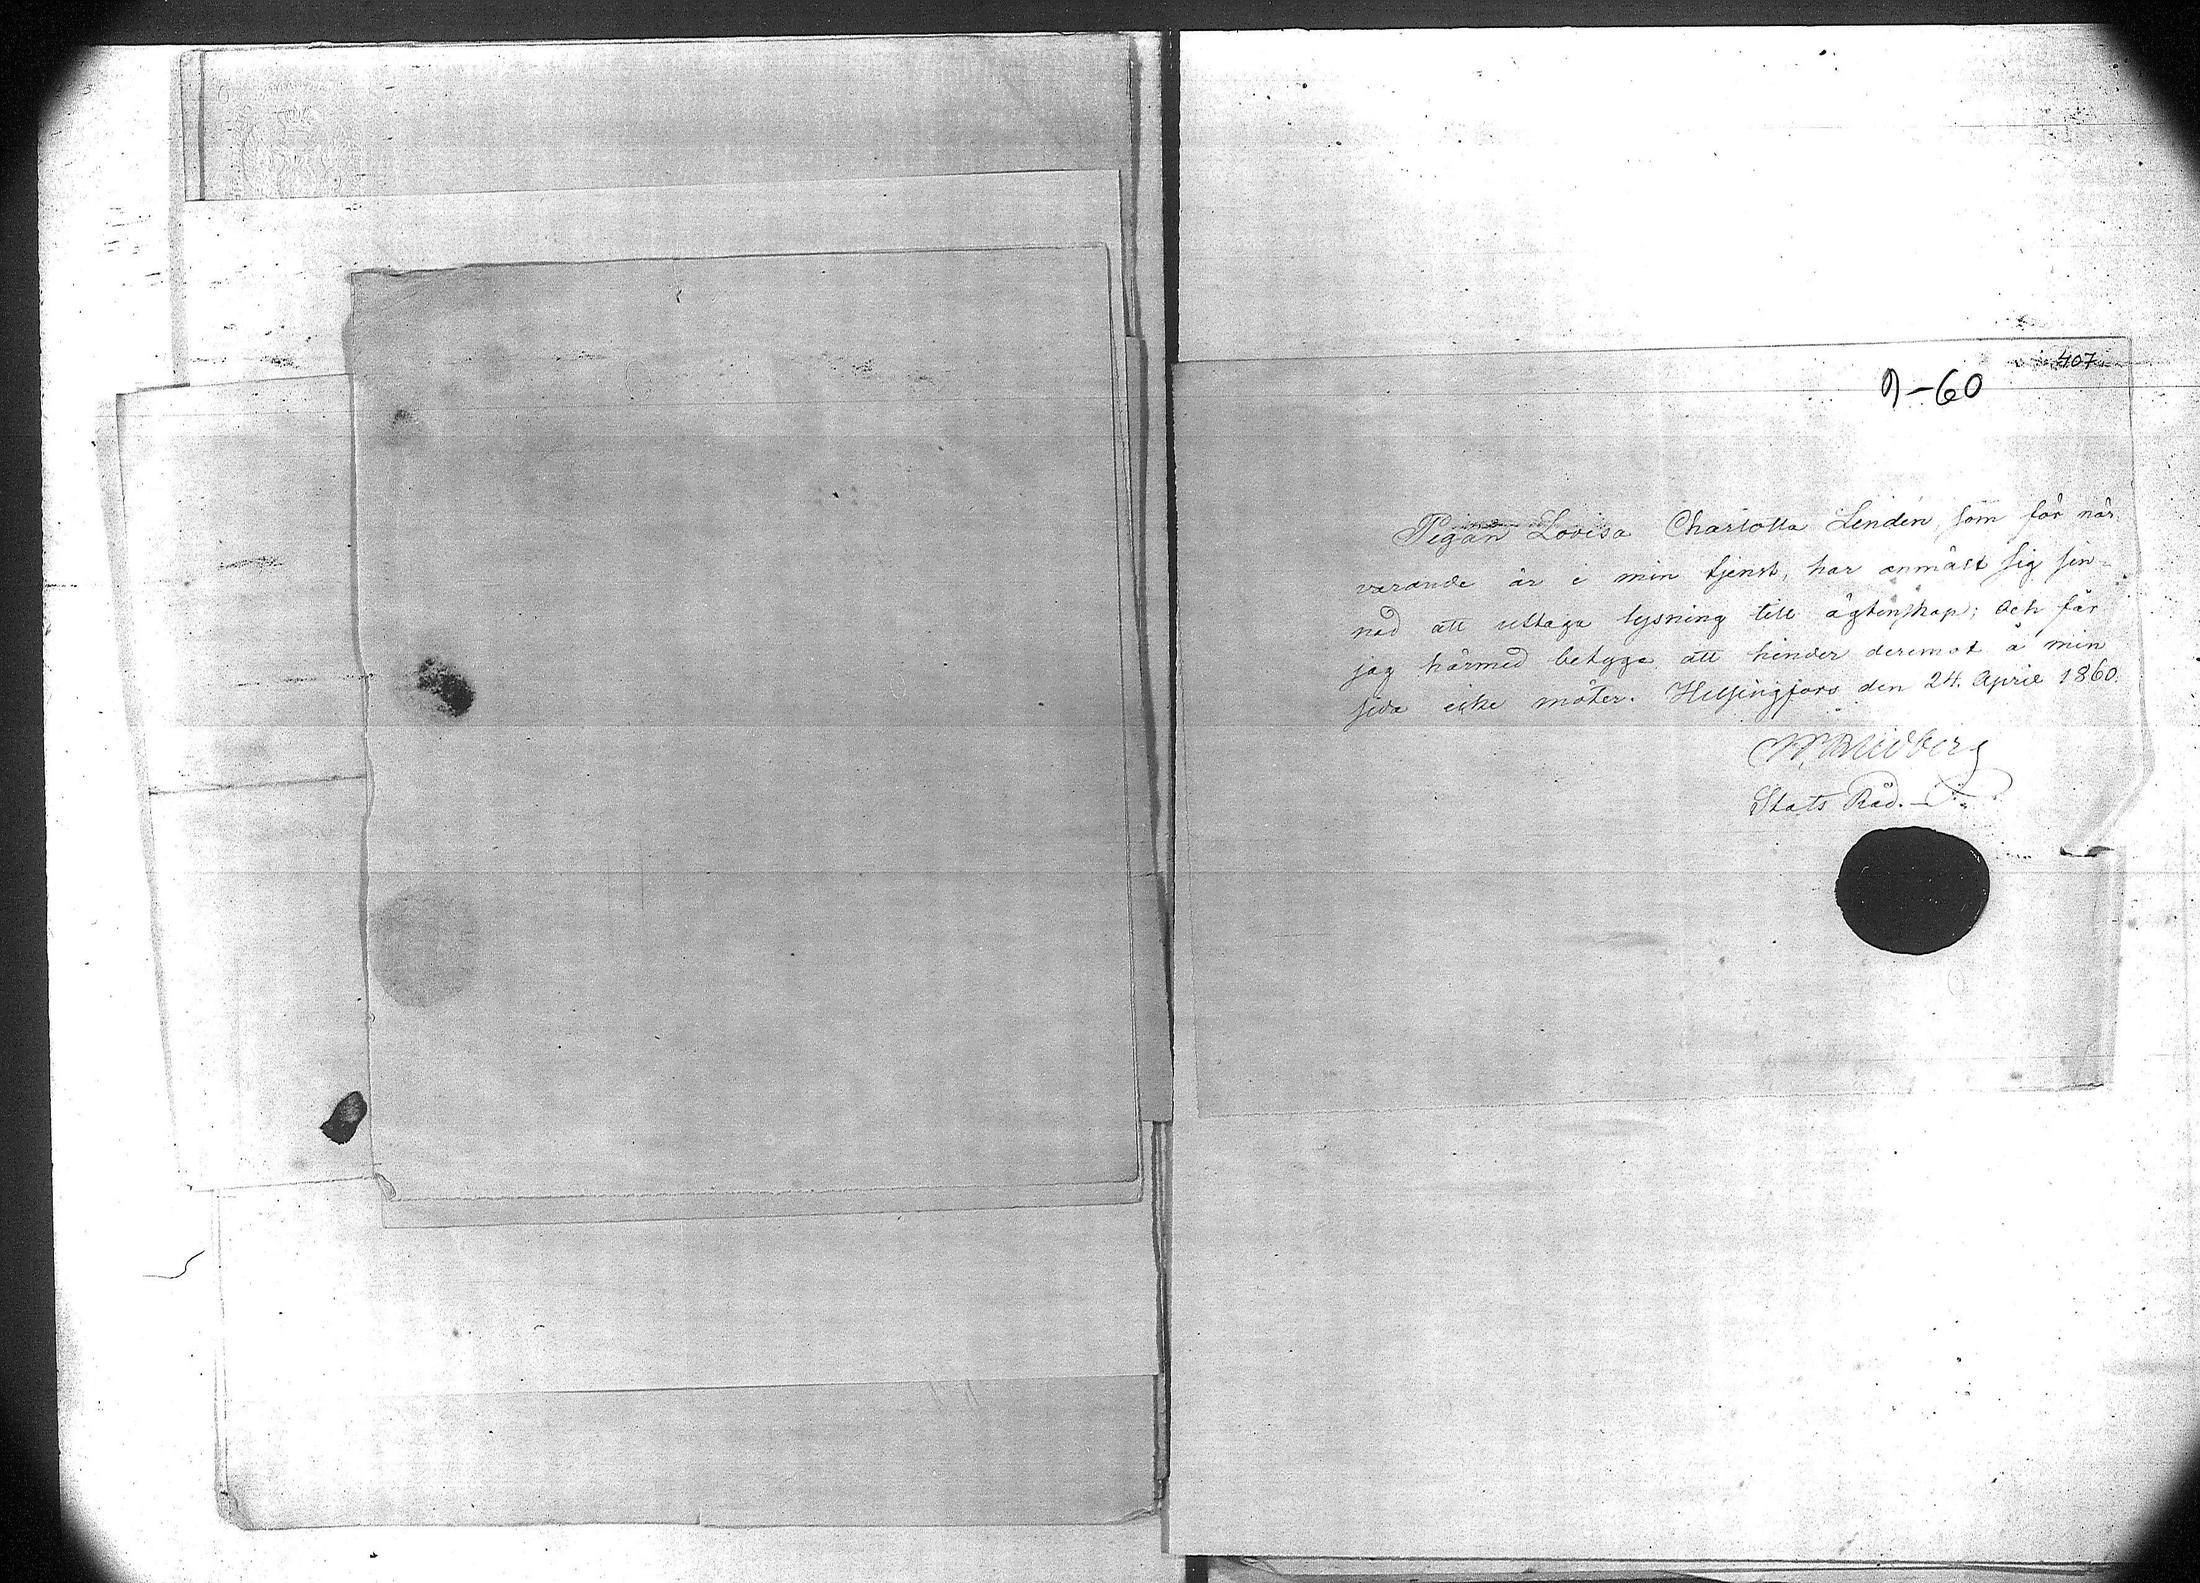 407
9-60
Pigan Lovisa Charlotta Lindén, som för när
varande är i min tjenst, har anmält sig sin-
nad att uttaga lysning till ägtenskap; och får
jag härmed betyga att hinder deremot å min
sida icke möter. Helsingfors den 24. April 1860.
Stats Råd.